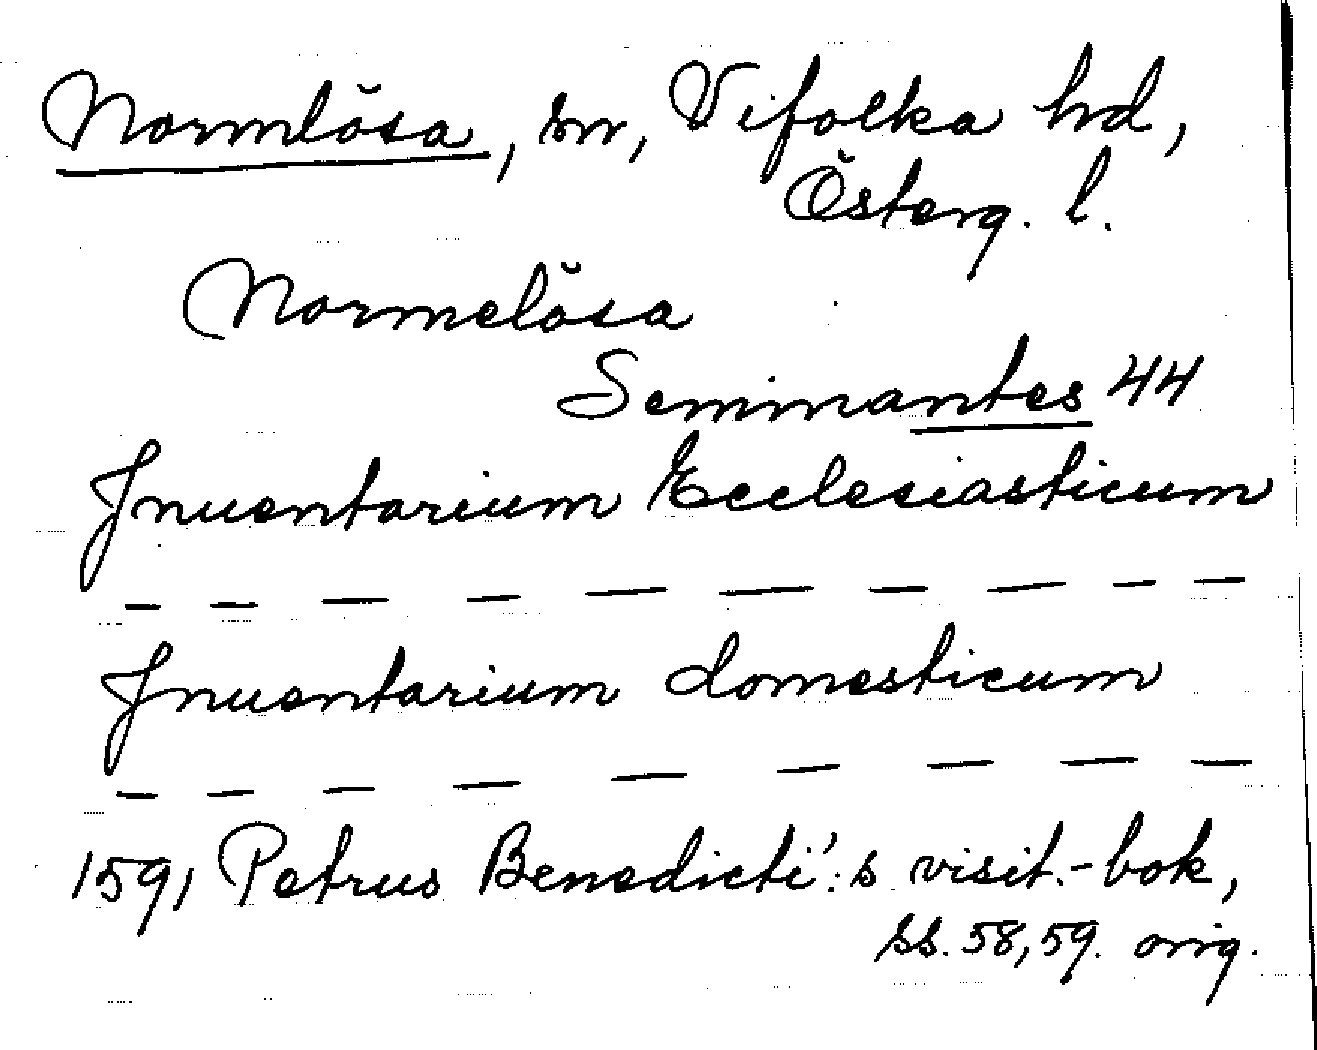 Normlösa, sn, Vifolka hd,
Österg. l.
Normelösa
Seminantes 44
Inuentarium Ecclesiasticum
— — — — — — — — — —
Inuentarium domesticum
— — — — — — — — —
1591 Petrus Benedicti's visit.-bok,
ss. 58, 59. orig.